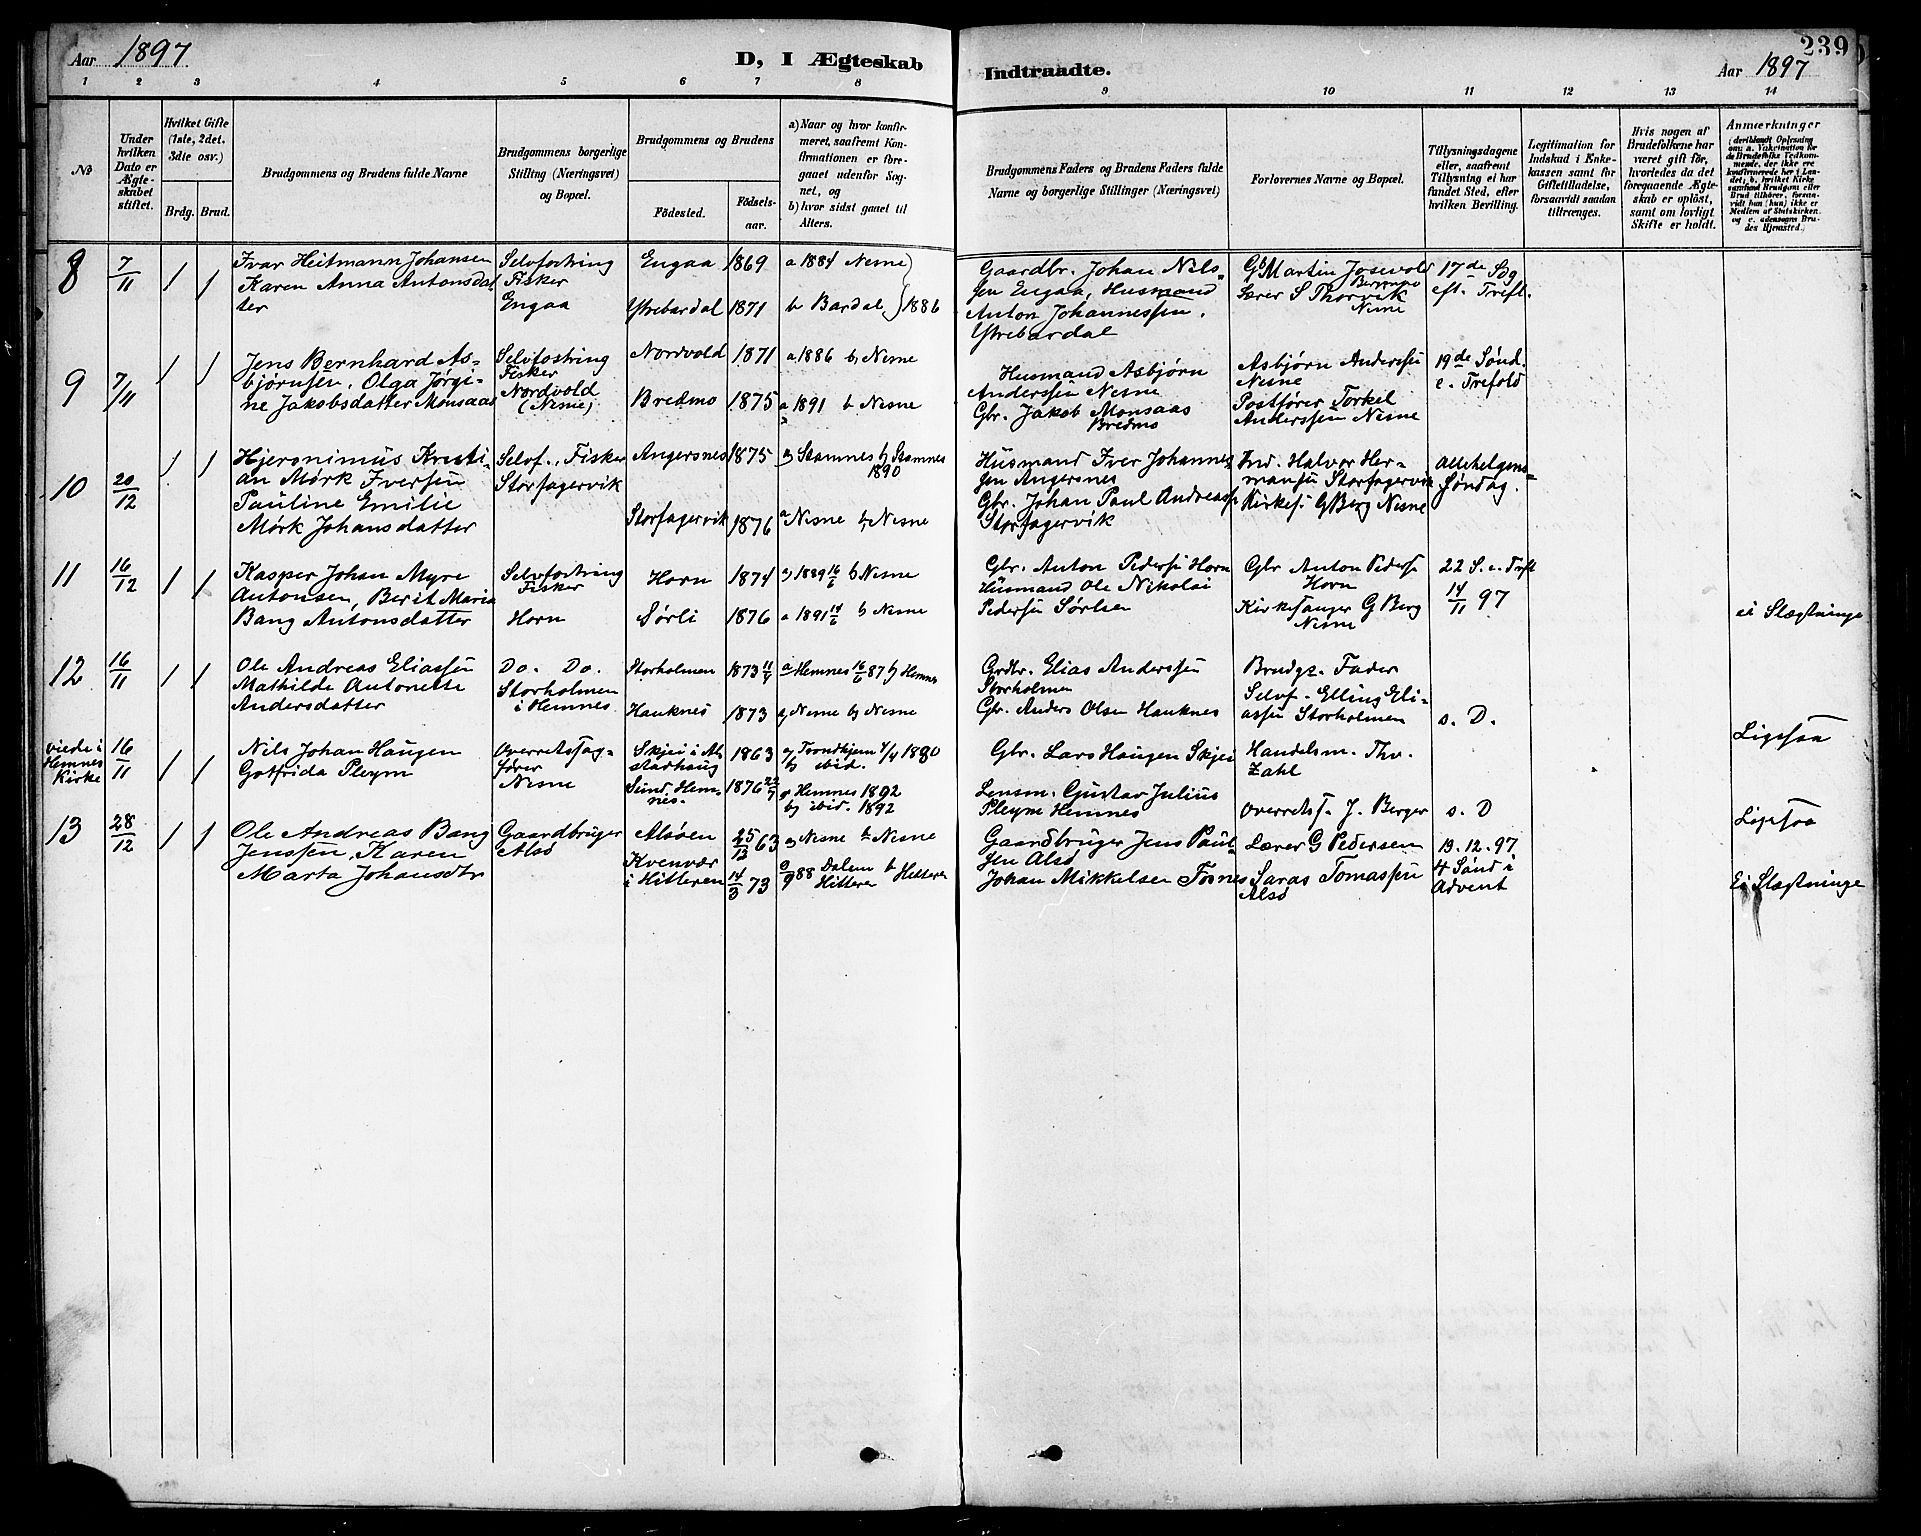 Aar 1897
D, I Ægteskab
Indtraadte.
239
Aar 1897
1 2 3 4 5 6 7 8 9 10 11 12 13 14
No
Under
hvilken
Dato er
Ægte-
skabet
stiftet.
Hvilket Gifte
(1ste, 2det,
3die osv.)
Brdg. Brud.
Brudgommens og Brudens fulde Navne
Brudgommens borgerlige
Stilling (Næringsvei)
og Bopæl.
Brudgommens og Brudens
Födested.
Födsels-
aar.
a) Naar og hvor konfir-
meret, saafremt Kon-
firmationen er fore-
gaaet udenfor Sog-
net, og
b) hvor sidst gaaet til
Alters.
Brudgommens Faders og Brudens Faders fulde
Navne og borgerlige Stillinger (Næringsvei)
Forlovernes Navne og Bopæl.
Tillysningsdagene
eller, saafremt
Tillysning ei har
fundet Sted, efter
hvilken Bevilling.
Legitimation for
Indskud i Enke-
kassen samt for
Giftetilladelse,
forsaavidt saadan
tiltrænges.
Hvis nogen af
Brudefolkene har
været gift för,
hvorledes da det
foregaaende Ægte-
skab er oplöst,
samt om lovligt
Skifte er holdt.
Anmærkninger
(deriblandt Oplysning
om: a. Vaccination for
de Brudefolks Vedkom-
mende, der ikke ere
konfirmerede her i Lan-
det; b. hvilket Kirke-
samfund Brudgom eller
Brud tilhører, foruaa-
vidt han (hun) ikke er
Medlem af Statskirken,
og c. udensogns Bru-
des Hjemsted.)
8 7/11 1 1
Ivar Heitmann Johansen
Karen Anna Antonsdat
ter
Selvfostring
Fisker
Engaa
Engaa 1869 a 1884 Nesne
Ytrebardal 1871 b Bardal 1886
Gaardbr. Johan Nils-
sen Engaa, Husmand
Anton Johannessen,
Ytrebardal
Gb Martin Josevold
Lærer S Thorvik
Nesne
17de Søg
eft. Trefl.
9 7/11 1 1
Jens Bernhard As-
bjørnsen, Olga Jørgi-
ne Jakobsdatter Monsaas
Selvfostring
Fisker
Nordvold
(Nesne)
Nordvold 1871 a 1886 b Nesne
Bredmo 1875 a 1891 b Nesne
Husmand Asbjørn
Anderssen Nesne
Gbr. Jakob Monsaas
Bredmo
Asbjørn Anderssen
Nesne
Postfører Torkel
Anderssen Nesne
19de Sønd.
e. Trefold
10 20/12 1 1
Hjeronimus Kristi-
an Mörk Iversen
Pauline Emilie
Mörk Johansdatter
Selvf., Fisker
Storfagervik
Angersnes 1875 a Stamnes b Stamnes
1890
Storfagervik 1876 a Nesne b Nesne
Husmand Iver Johannes
sen Angersnes
Gbr. Johan Paul Andreass
Storfagervik
Ind. Halvor Her-
mansen Storfagervik
Kirkes. G Berg Nesne
Allehelgens-
Søndag.
11 16/12 1 1
Kasper Johan Myre
Antonsen, Berit Maria
Bang Antonsdatter
Selvfostring
Fisker
Horn
Horn 1874 a 1889 16/6 b Nesne
Sørli 1876 a 1891 14/6 b Nesne
Gbr. Anton Pedersen Horn
Husmand Ole Nikolai
Pedersen Sørlien
Gbr Anton Peders
Horn
Kirkesanger G Berg
Nesne
22 S. e. Treft
14/11 97
ei Slægtninge
12 16/11 1 1
Ole Andreas Eliassen
Mathilde Antonette
Andersdatter
Do. Do.
Storholmen
i Hemnes
Storholmen 1873 11/4 a Hemnes 16/6 87 b Hemnes
Hauknes 1873 a Nesne b Nesne
Grdbr. Elias Anderssen
Storholmen
Gbr. Anders Olsen Hauknes
Brudgs. Fader
Selvf. Elling Eli-
assen Storholmen
s. D.
Ligesaa
viede i
Hemnes
Kirke
16/11 1 1
Nils Johan Haugen
Gotfrida Pleym
Overretssag-
fører
Nesne
Skjei i Al-
stadhaug 1863 a Trondhjem 4/4 1880
b ibid.
Sund. Hem-
nes. 1876 22/7 a Hemnes 1892
b ibid. 1892
Gbr. Lars Haugen Skjei
Lensm. Gustav Julius
Pleym Hemnes
Handelsm. Thv.
Zahl
Overretss. J. Berger
s. D
Ligesaa
13 28/12 1 1
Ole Andreas Bang
Jenssen, Karen
Marta Johansdtr
Gaardbruger
Alsö
Alsöen 25/12 63 a Nesne b Nesne
Kvenvær
i Hitteren 14/3 73 9/9 88 Dalem b Hitteren
Hitteren
Gaardbruger Jens Paul-
sen Alsö
Johan Mikkelsen Fosnes
Lærer G Pedersen
Saras Tomassen
Alsö
13.12.97
4 Sønd i
Advent
Ei Slægtninge